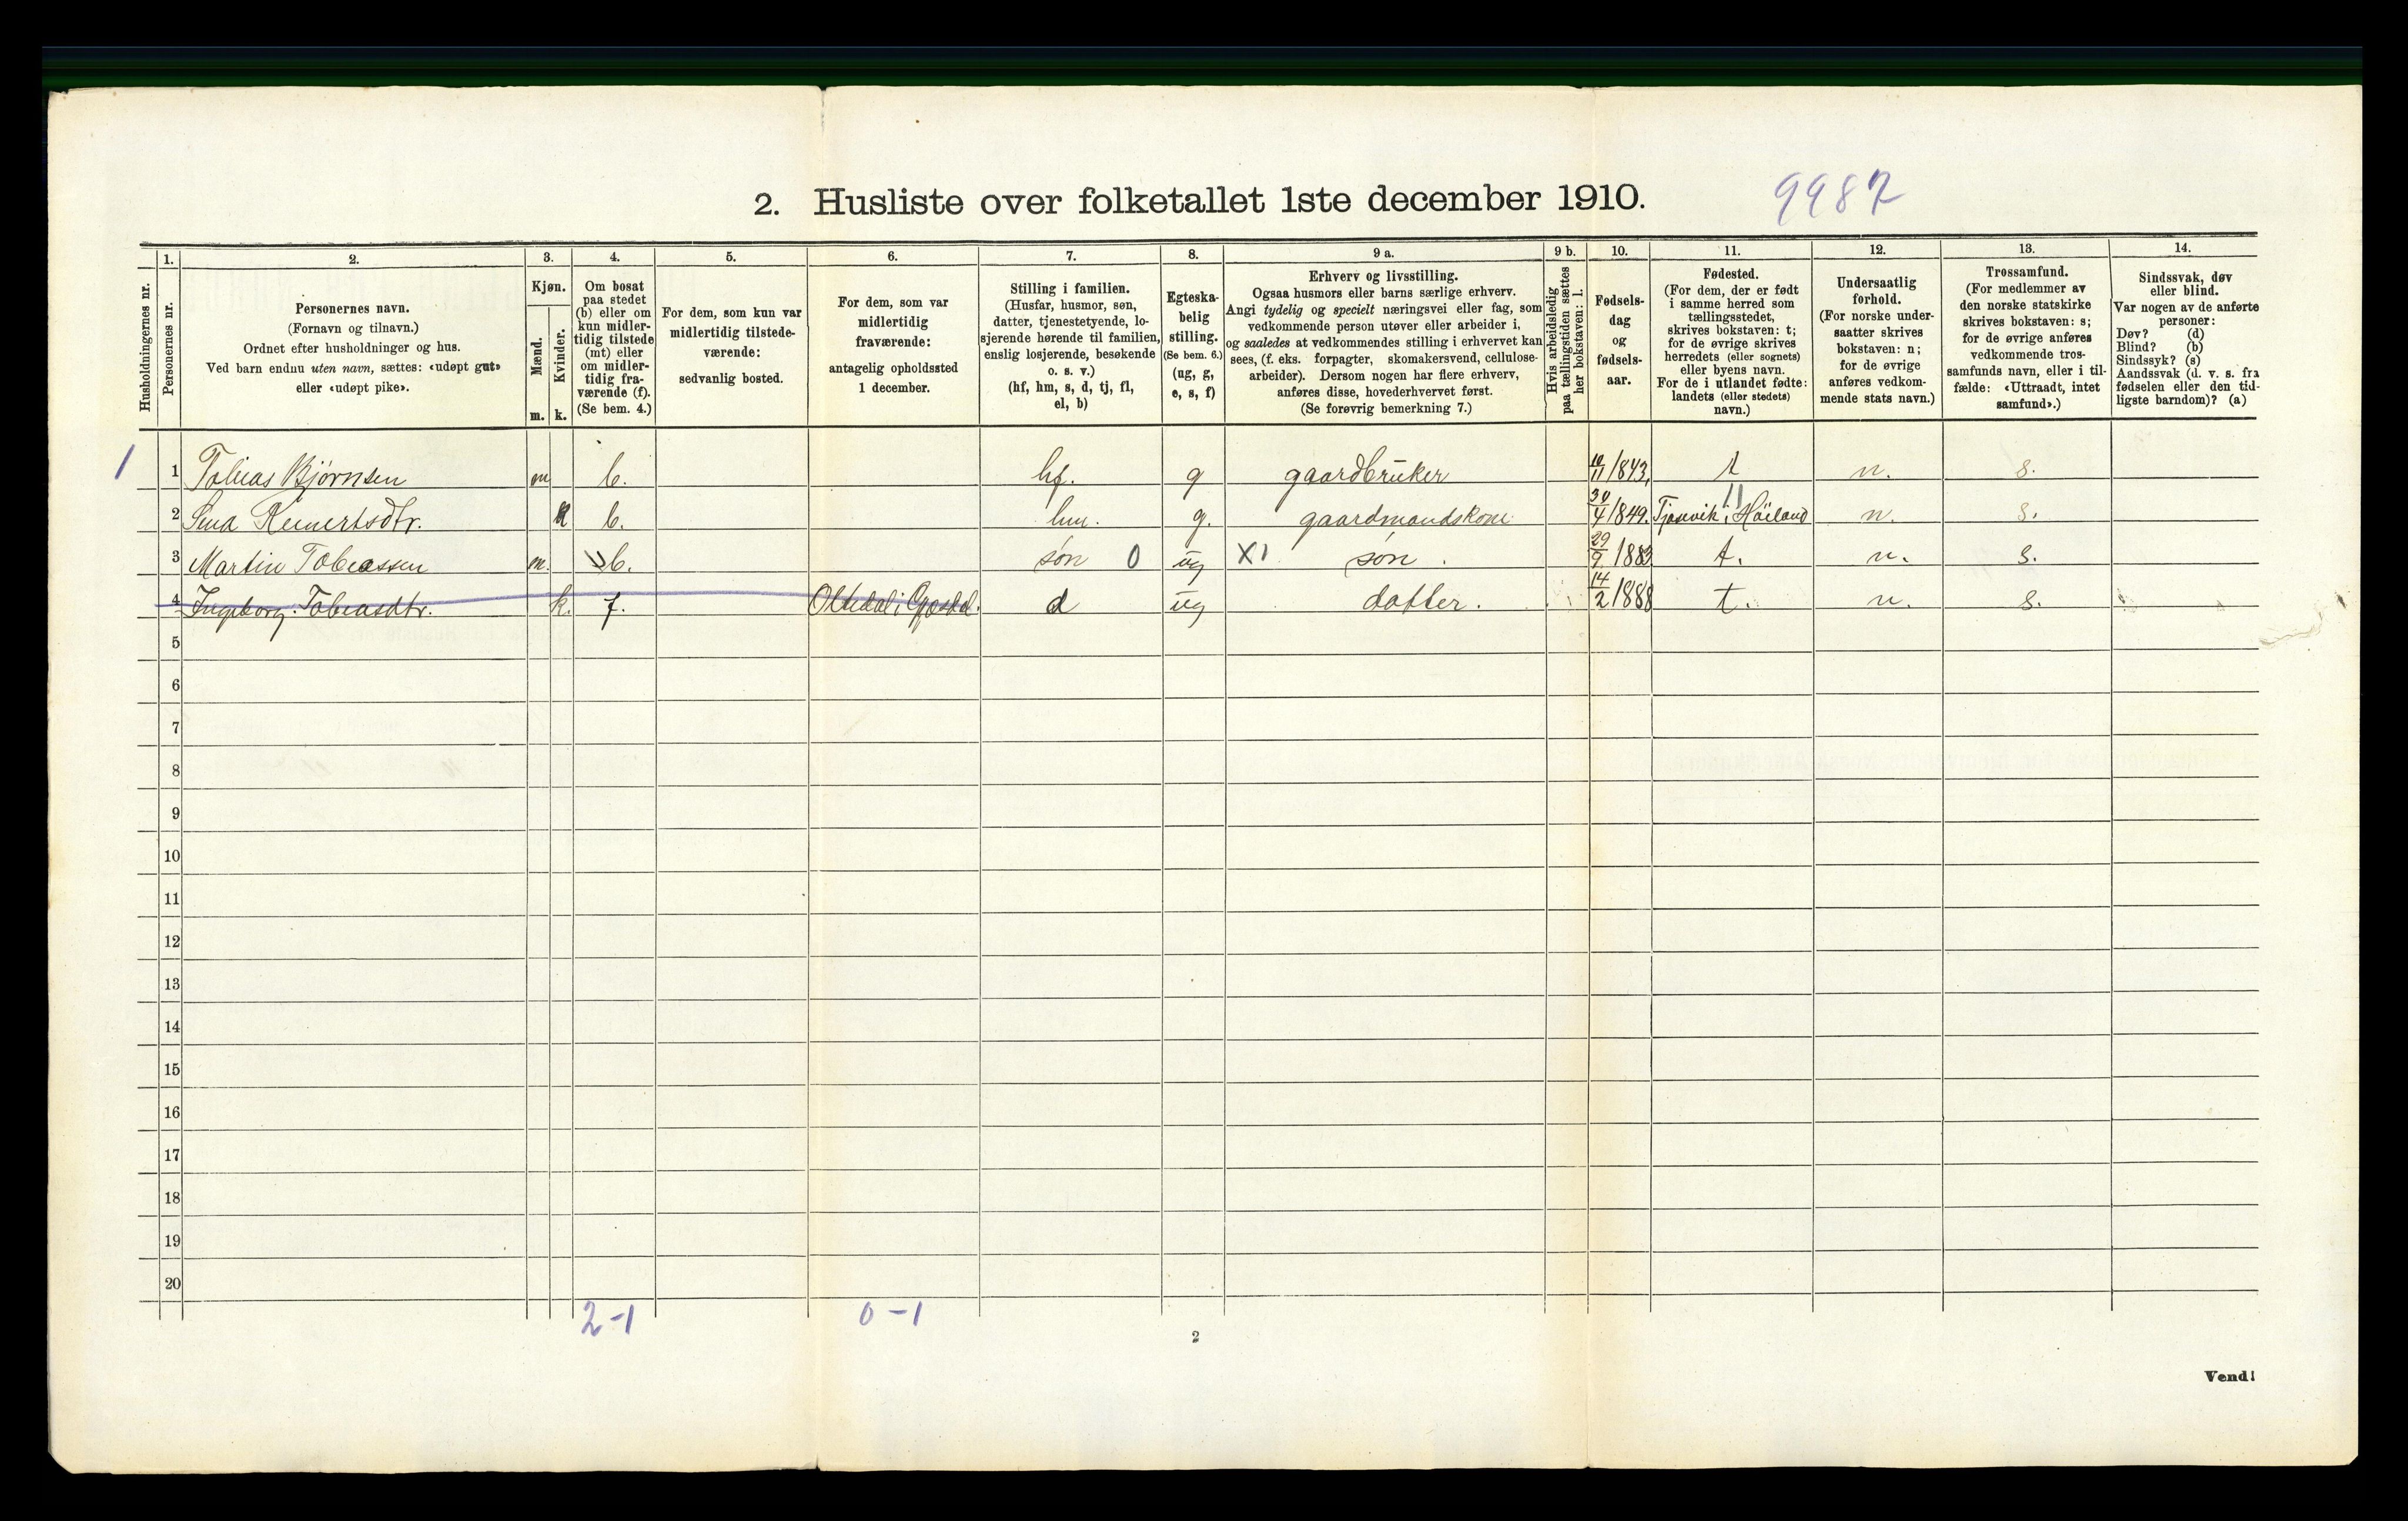 2. Husliste over folketallet 1ste december 1910.
9987
Husholdningernes nr.
1.
Personernes nr.
2.
Personernes navn.
(Fornavn og tilnavn.)
Ordnet efter husholdninger og hus.
Ved barn endnu uten navn, sættes: «udøpt gut»
eller «udøpt pike».
3.
Kjøn.
Mænd.
m.
Kvinder.
k.
4.
Om bosat
paa stedet
(b) eller om
kun midler-
tidig tilstede
(mt) eller
om midler-
tidig fra-
værende (f).
(Se bem. 4.)
5.
For dem, som kun var
midlertidig tilstede-
værende:
sedvanlig bosted.
6.
For dem, som var
midlertidig
fraværende:
antagelig opholdssted
1 december.
7.
Stilling i familien.
(Husfar, husmor, søn,
datter, tjenestetyende, lo-
sjerende hørende til familien,
enslig losjerende, besøkende
o. s. v.)
(hf, hm, s, d, tj, fl,
el, b)
8.
Egteska-
belig
stilling.
(Se bem. 6.)
(ug, g,
e, s, f)
9 a.
Erhverv og livsstilling.
Ogsaa husmors eller barns særlige erhverv.
Angi tydelig og specielt næringsvei eller fag, som
vedkommende person utøver eller arbeider i,
og saaledes at vedkommendes stilling i erhvervet kan
sees, (f. eks. forpagter, skomakersvend, cellulose-
arbeider). Dersom nogen har flere erhverv,
anføres disse, hovederhvervet først.
(Se forøvrig bemerkning 7.)
9 b.
Hvis arbeidsledig
paa tællingstiden sættes
her bokstaven: l.
10.
Fødsels-
dag
og
fødsels-
aar.
11.
Fødested.
(For dem, der er født
i samme herred som
tællingsstedet,
skrives bokstaven: t;
for de øvrige skrives
herredets (eller sognets)
eller byens navn.
For de i utlandet fødte:
landets (eller stedets)
navn.)
12.
Undersaatlig
forhold.
(For norske under-
saatter skrives
bokstaven: n;
for de øvrige
anføres vedkom-
mende stats navn.)
13.
Trossamfund.
(For medlemmer av
den norske statskirke
skrives bokstaven: s;
for de øvrige anføres
vedkommende tros-
samfunds navn, eller i til-
fælde: «Uttraadt, intet
samfund».)
14.
Sindssvak, døv
eller blind.
Var nogen av de anførte
personer:
Døv? (d)
Blind? (b)
Sindssyk? (s)
Aandssvak (d. v. s. fra
fødselen eller den tid-
ligste barndom)? (a)
1 1 Tobias Bjørnsen m b. hf. g gaardbruker 10/11 1843, t n. s.
2 Sina Reinertsdtr. k b. hm. g. gaardmandskone 30/4 1849. Tjosevik i Høiland n. s.
3 Martin Tobiassen m. b. søn 0 ug X1 søn . 29/9 1883 t. n. s.
4 Ingeborg Tobiasdtr. k. f. Oltedal i Gjesdal. d ug datter. 14/2 1888 t. n. s.
5
6
7
8
9
10
11
12
13
14
15
16
17
18
19
20
2-1
0-1
2
Vend!